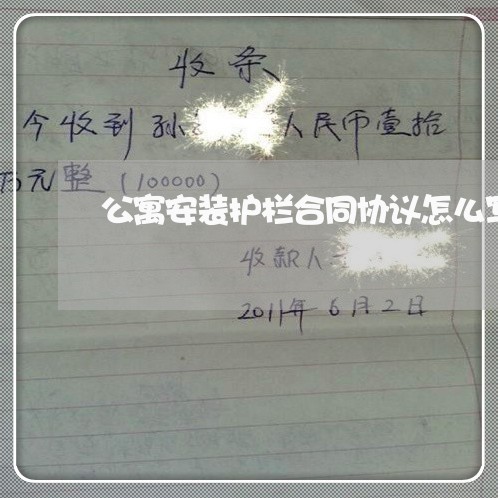 收条
今收到孙 人民币壹拾
万元整(100000)
公寓安装护栏合同协议怎么
收款人
2011年6月2日